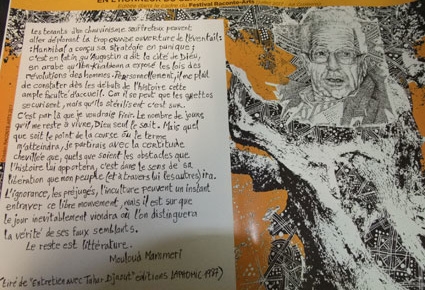 EN L'HONNEUR DU
Festival Raconte-Arts
Les tenants d'un chauvinisme souffreteux peuvent
aller déplorant la trop grande ouverture de l'éventail :
Hannibal a conçu sa stratégie en punique ;
c'est en latin qu'Augustin a dit la cité de Dieu,
en arabe qu'Ibn-Khaldoun a exposé les lois des
révolutions des hommes. Personnellement, il me plait
de constater dès les débuts de l'histoire cette
ample faculté d'accueil. Car il se peut que les ghettos
sécurisent, mais qu'ils stérilisent c'est sûr.
C'est par là que je voudrais finir. Le nombre de jours
qu'il me reste à vivre, Dieu seul le sait. Mais quel
que soit le point de la course où le terme
m'atteindra, je partirais avec la certitude
chevillée que, quels que soient les obstacles que
l'histoire lui apportera, c'est dans le sens de sa
libération que mon peuple (et à travers lui les autres) ira.
L'ignorance, les préjugés, l'inculture peuvent un instant
entraver ce libre mouvement, mais il est sûr que
le jour inévitablement viendra où l'on distinguera
la vérité de ses faux semblants.
Le reste est littérature.
Mouloud Mammeri
(tiré de "Entretien avec Tahar Djaout" editions LAPHOMIC 1987)